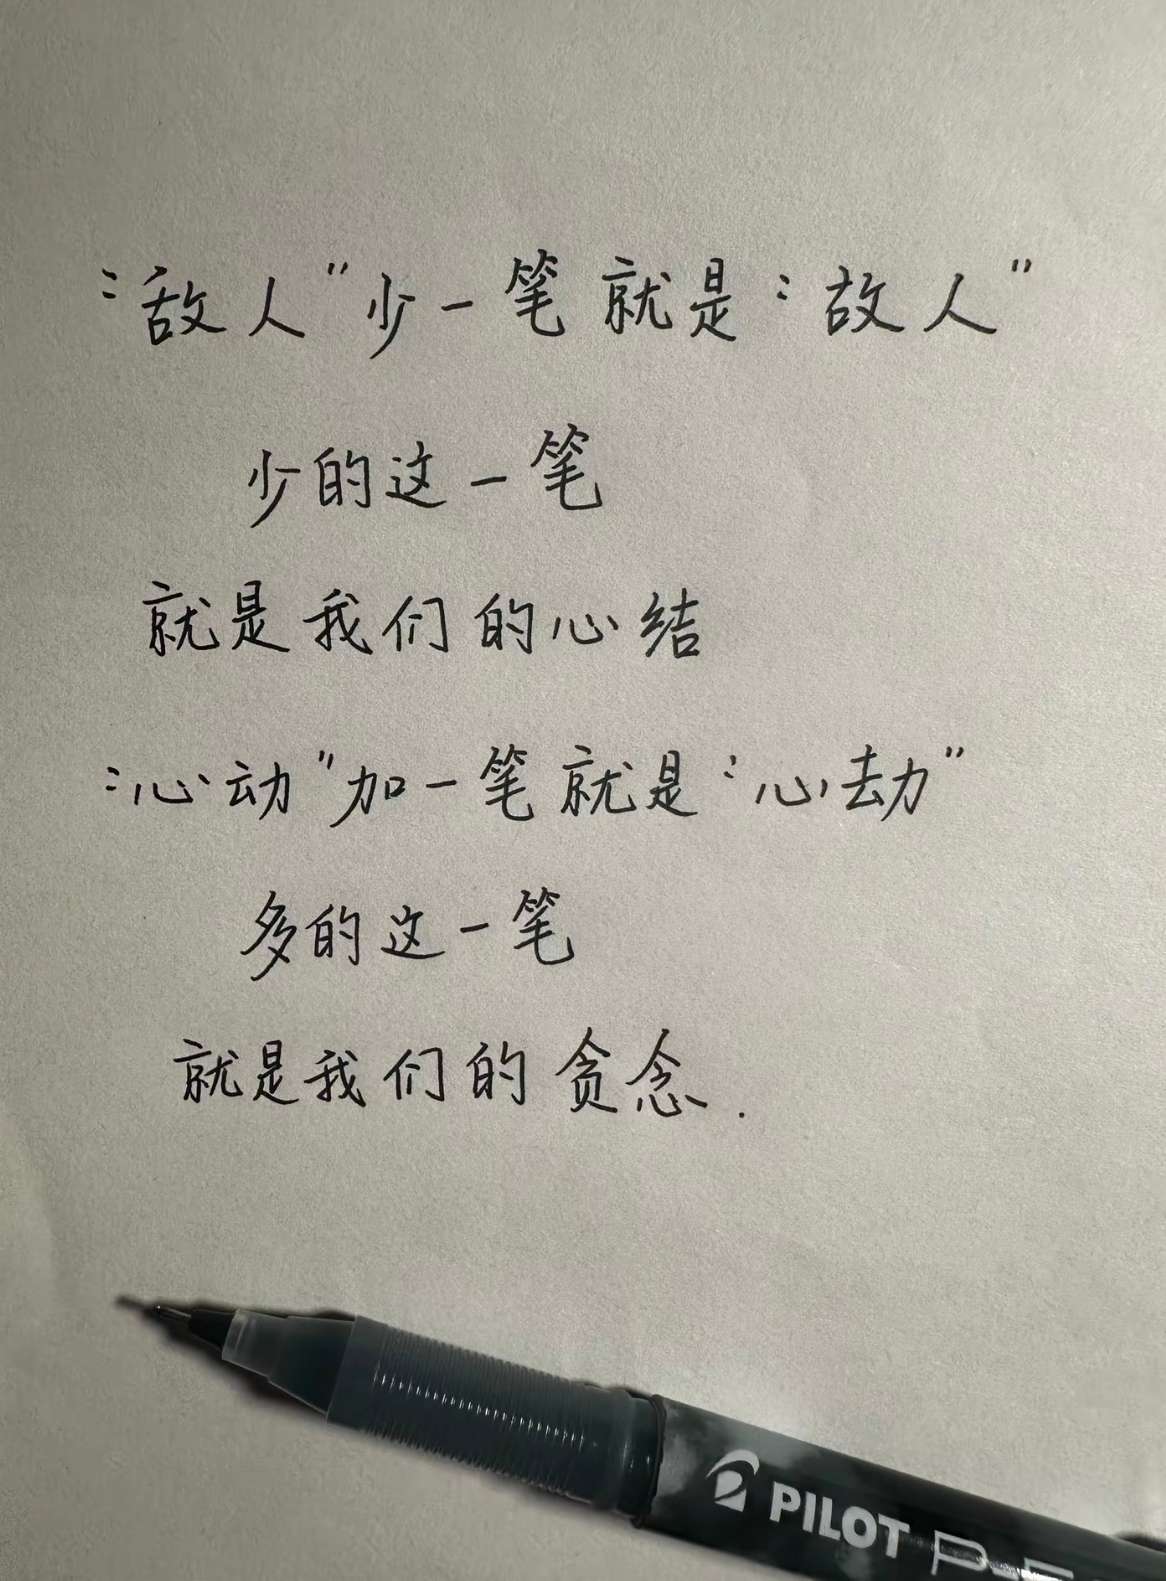 “敌人”少一笔就是“故人”
少的这一笔
就是我们的心结
“心动”加一笔就是“心劫”
多的这一笔
就是我们的贪念.
PILOT P-5